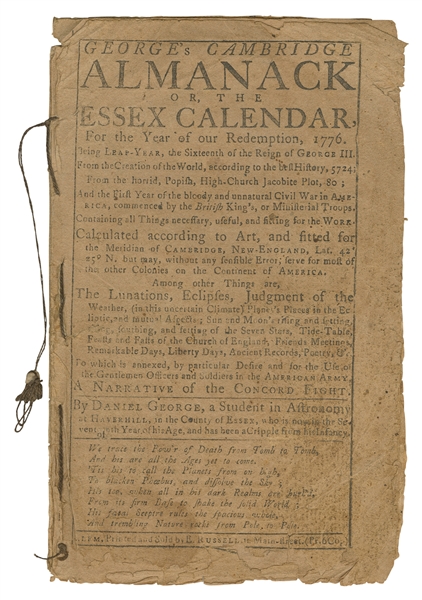 GEORGE's CAMBRIDGE
ALMANACK
OR, THE
ESSEX CALENDAR,
For the Year of our Redemption, 1776.
Being LEAP-YEAR, the Sixteenth of the Reign of GEORGE III.
From the Creation of the World, according to the best History, 5724;
From the horrid, Popish, High-Church Jacobite Plot, 80;
And the First Year of the bloody and unnatural Civil War in AME-
RICA, commenced by the British King's, or Ministerial Troops,
Containing all Things necessary, useful, and fitting for the WORK.
Calculated according to Art, and fitted for
the Meridian of CAMBRIDGE, NEW-ENGLAND, Lat. 42°
25° N. but may, without any sensible Error, serve for most of
the other Colonies on the Continent of AMERICA.
Among other Things are,
The Lunations, Eclipses, Judgment of the
Weather, (in this uncertain Climate) Planet's Places in the Ec-
liptic, and mutual Aspects; Sun and Moon's rising and setting,
rising, southing, and setting of the Seven Stars, Tide-Table,
Feasts and Fasts of the Church of England, Friends Meetings,
Remarkable Days, Liberty Days, Ancient Records, Poetry, &c.
To which is annexed, by particular Desire and for the Use of
the Gentlemen Officers and Soldiers in the AMERICAN ARMY,
A NARRATIVE of the CONCORD FIGHT.
By DANIEL GEORGE, a Student in Astronomy
at HAVERHILL, in the County of ESSEX, who is now in the Se-
venteenth Year of his Age, and has been a Cripple from his Infancy.
We trace the Pow'r of Death from Tomb to Tomb,
And his are all the Ages yet to come.
'Tis his to call the Planets from on high,
To blacken Phœbus, and dissolve the Sky;
His too, when all in his dark Realms are hurl'd,
From its firm Base to shake the solid World;
His fatal Sceptre rules the spacious whole,
And trembling Nature rocks from Pole to Pole.
Printed and Sold by E. RUSSELL, in Main-street.